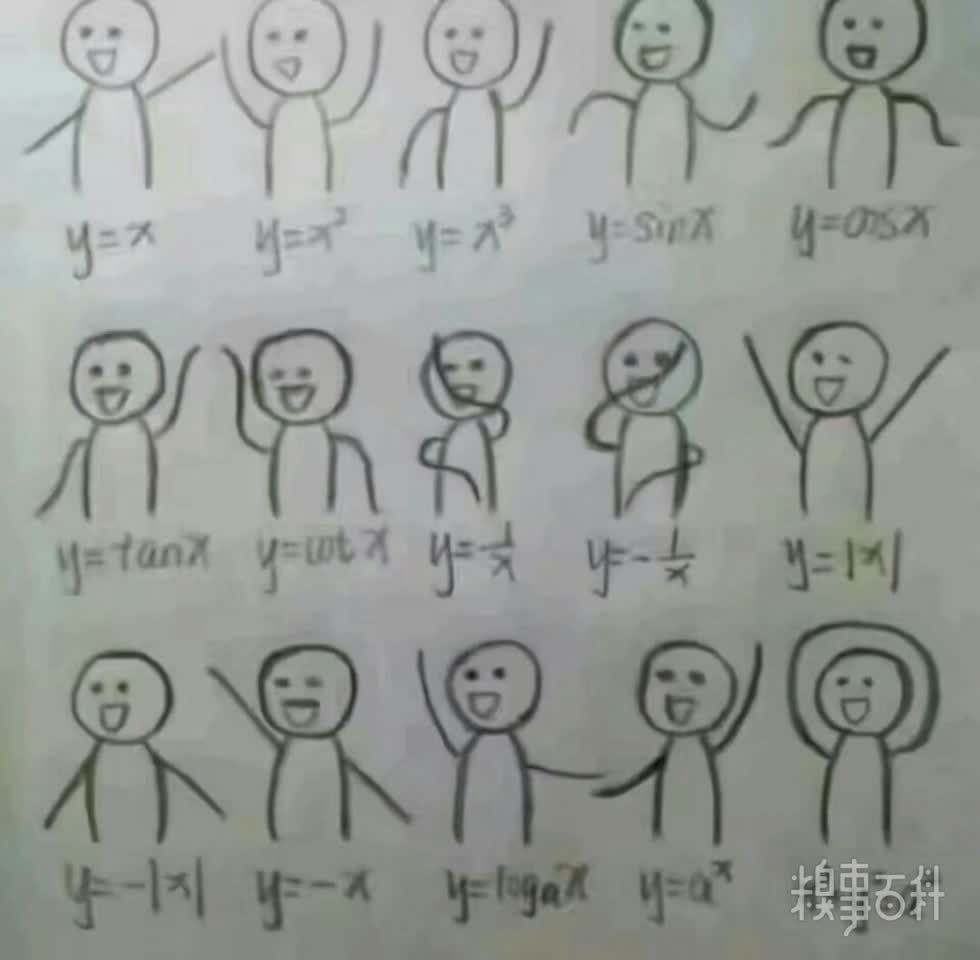 y=x y=x² y=x³ y=sinx y=cosx
y=tanx y=cotx y=1/x y=-1/x y=|x|
y=-|x| y=-x y=logₐx y=aˣ
糗事百科